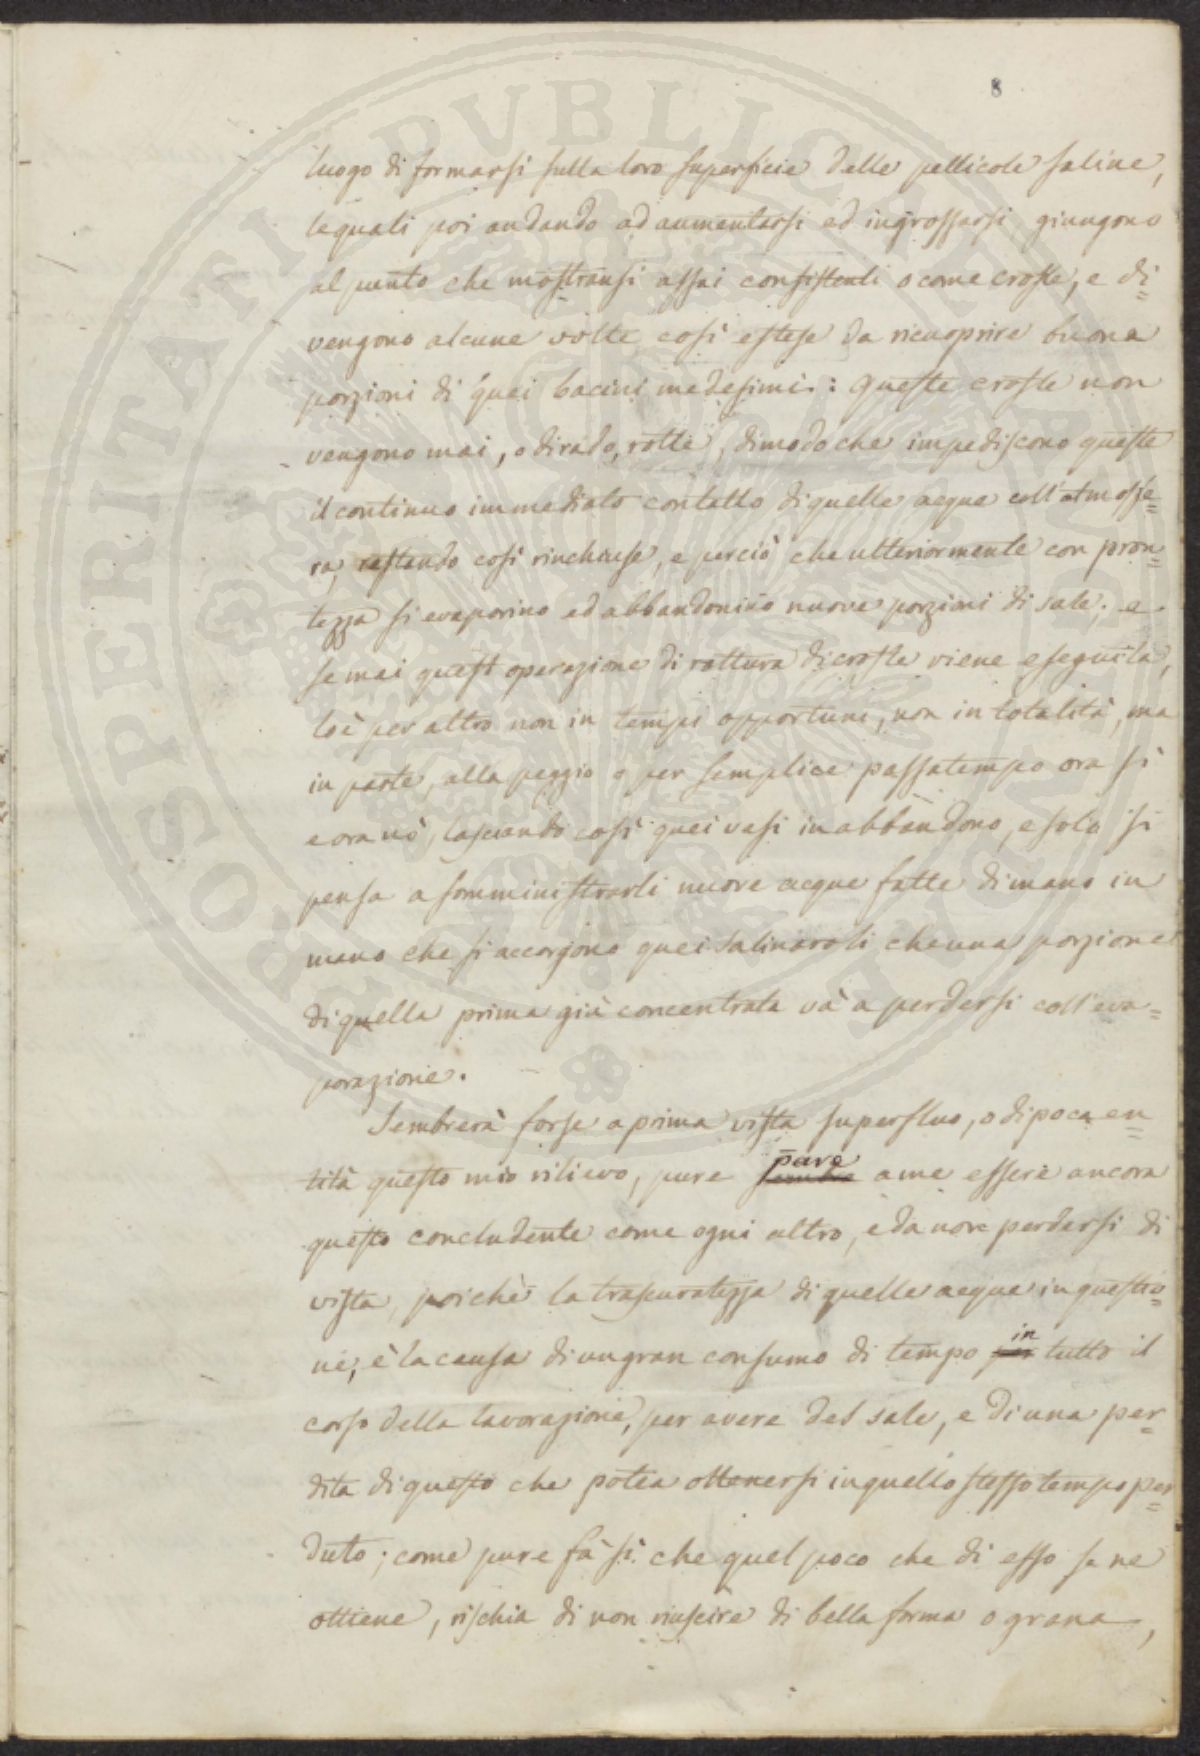 8
luogo di formarsi sulla loro superficie delle pellicole saline,
lequali poi andando ad aumentarsi ed ingrossarsi, giungono
al punto che mostransi assai consistenti o come croste, e di=
vengono alcune volte così estese da ricuoprire buona
porzioni di quei bacini medesimi: queste croste non
vengono mai, o dirado, rotte, dimodoche impediscono queste
il continuo immediato contatto di quelle acque coll'atmosfe=
ra, restando così rinchiuse, e perciò che ulteriormente con pron=
tezza si evaporino ed abbandonino nuove porzioni di sale; e
se mai quest operazione di rottura di croste viene eseguita,
lo è per altro non in tempi opportuni, non in totalità, ma
in parte, alla peggio o per semplice passatempo ora sì
e ora nò, lasciando così quei vasi in abbandono, e solo si
pensa a somministrarli nuove acque fatte di mano in
mano che si accorgono quei salinaroli che una porzione
di quella prima già concentrata và a perdersi coll'eva=
porazione.
Sembrerà forse a prima vista superfluo, o di poca en=
tità questo mio rilievo, pure sembra pare a me essere ancora
questo concludente come ogni altro, e da non perdersi di
vista, poichè la trascuratezza di quelle acque in questio=
ne, è la causa di un gran consumo di tempo per in tutto il
corso della lavorazione, per avere del sale, e di una per=
dita di questo che potea ottenersi in quello stesso tempo per=
duto; come pure fà sì che quel poco che di esso se ne
ottiene, rischia di non riuscire di bella forma o grana,
PROSPERITATI PVBLICAE